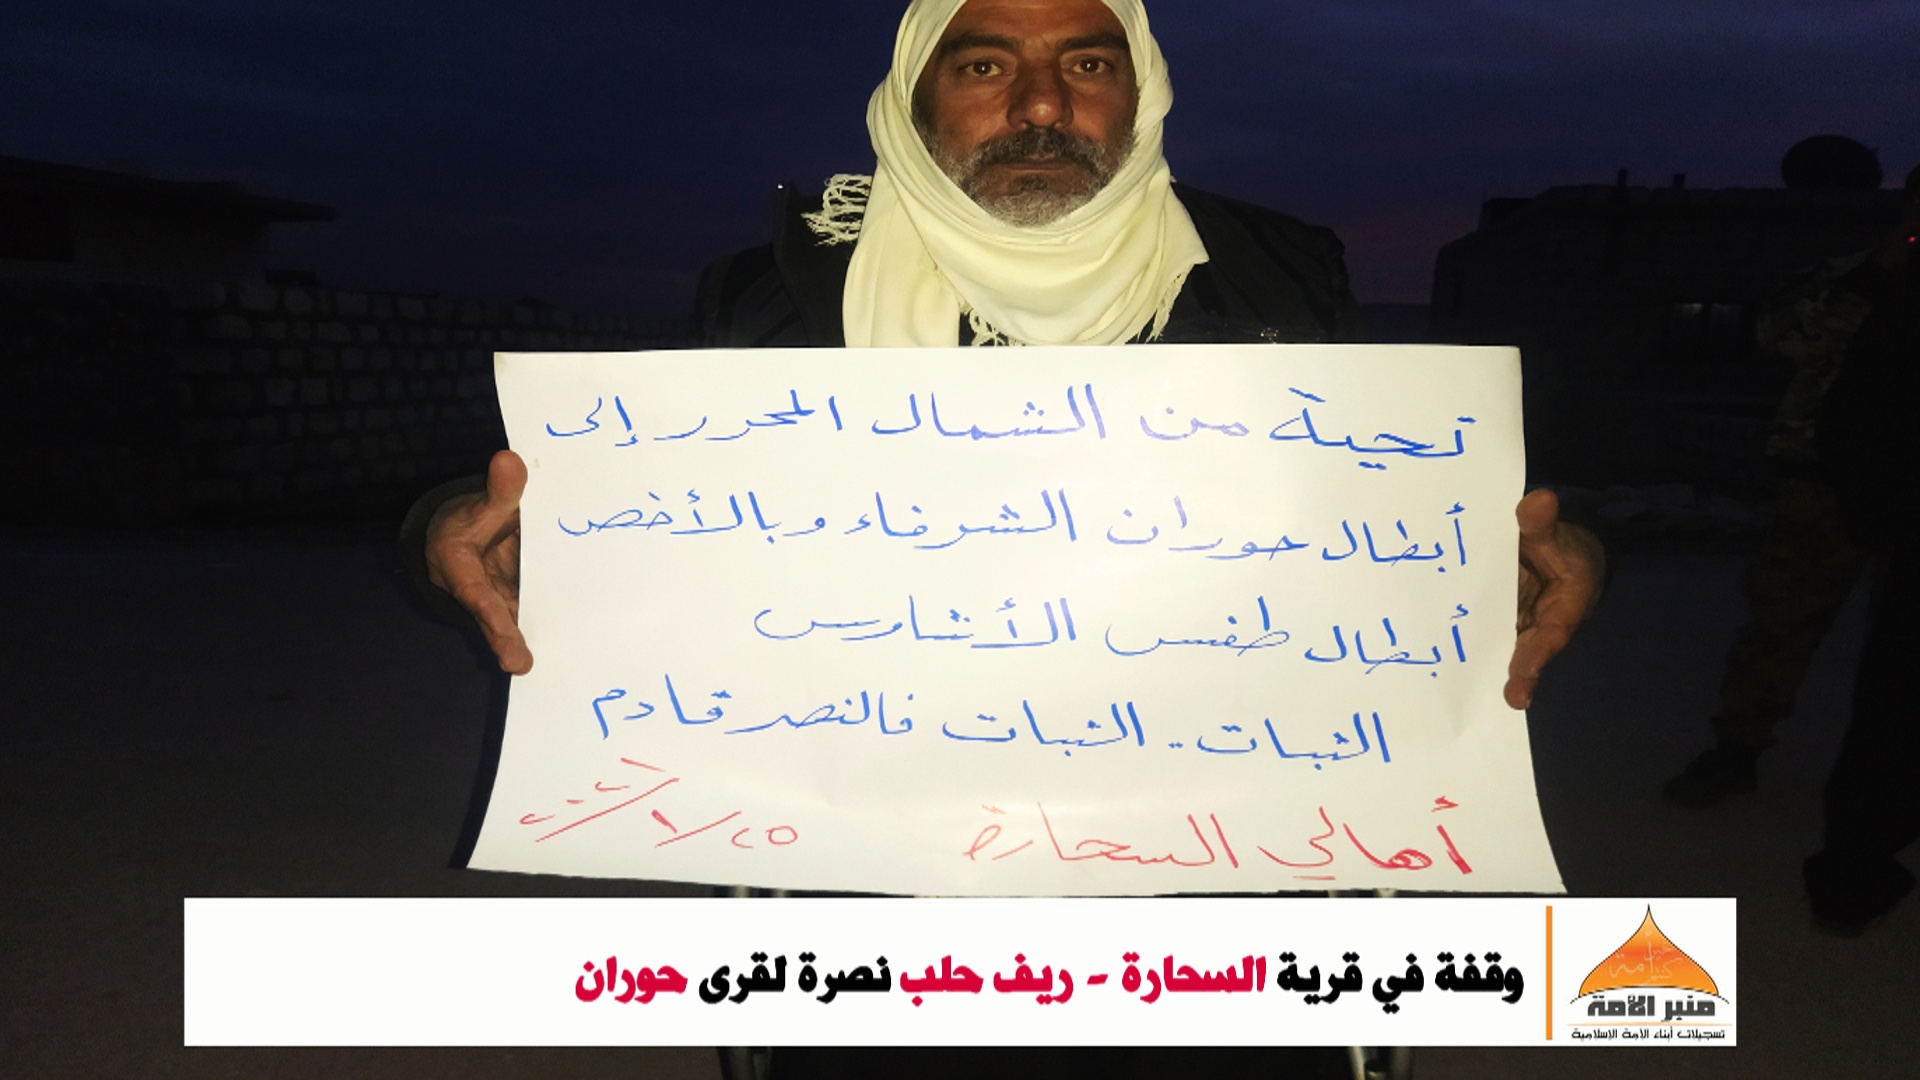 تحية من الشمال المحرر إلى
أبطال حوران الشرفاء وبالأخص
أبطال طفس الأشاوس
الثبات .. الثبات فالنصر قادم
أهالي السحارة
وقفة في قرية السحارة - ريف حلب نصرة لقرى حوران
منبر الأمة
تسجيلات أبناء الأمة الإسلامية